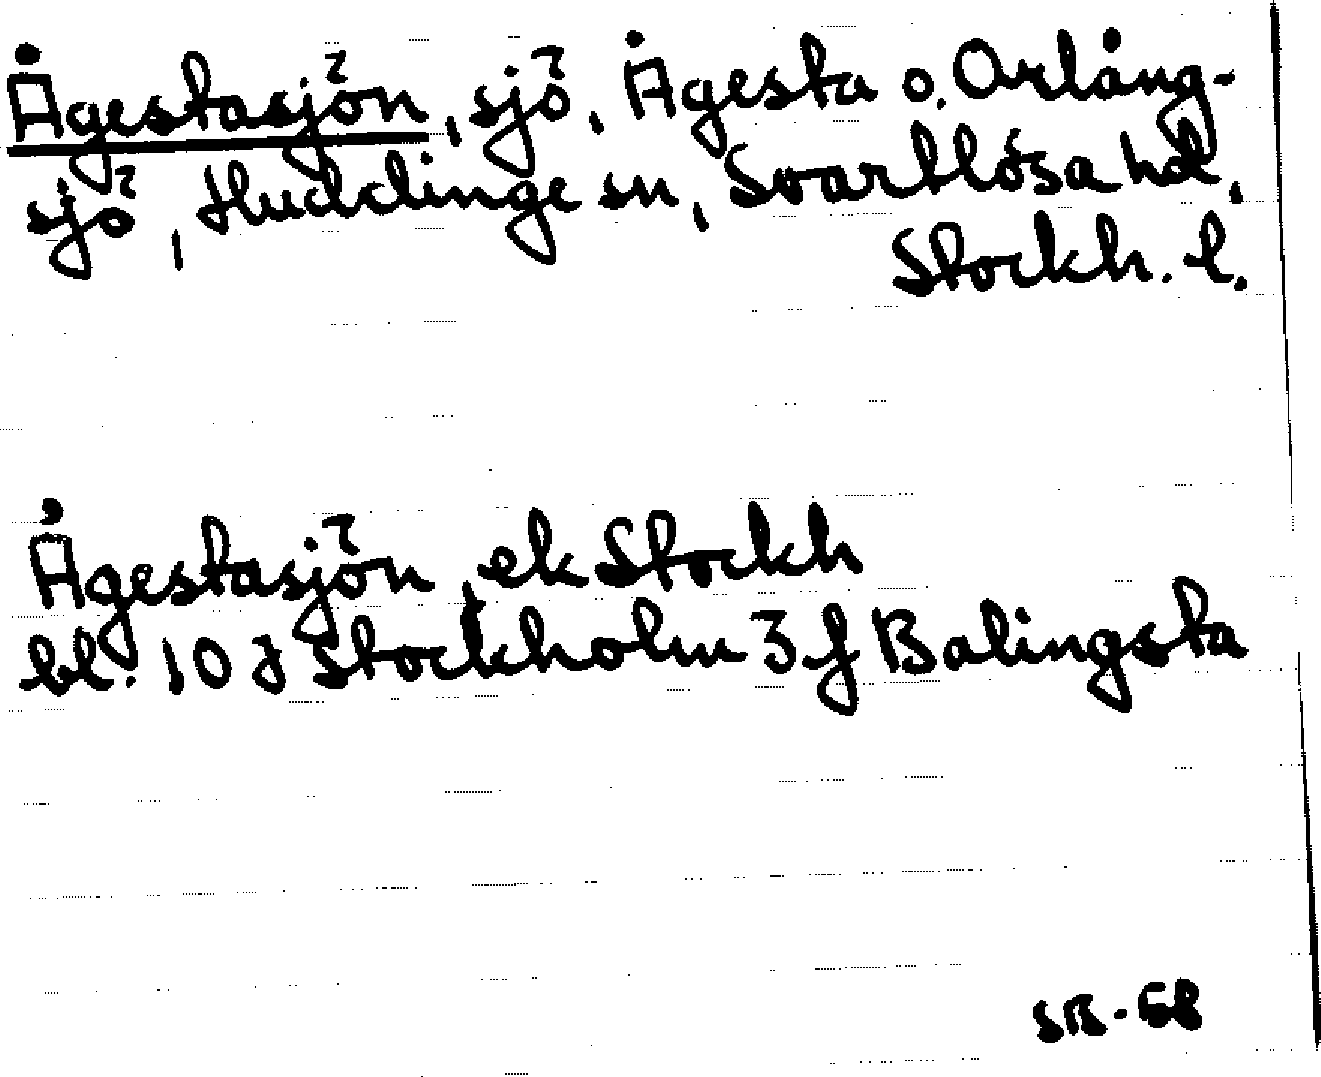 Ågestasjön, sjö, Ågesta o. Orlång-
sjö, Huddinge sn, Svartlösa hd,
Stockh. l.
Ågestasjön, ek Stockh
bl. 10 J Stockholm 3 f Balingsta
SB-68